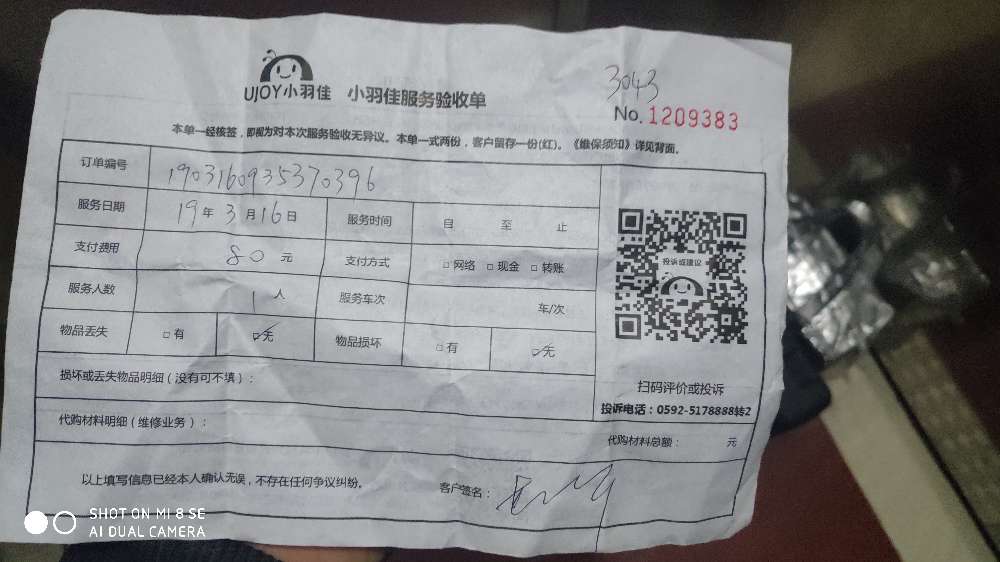 3043
UJOY小羽佳 小羽佳服务验收单
No. 1209383
本单一经核签，即视为对本次服务验收无异议。本单一式两份，客户留存一份(红)。《维保须知》详见背面。
订单编号 1903160935370396
服务日期 19年3月16日 服务时间 自 至 止
支付费用 80元 支付方式 □网络 □现金 □转账
服务人数 1人 服务车次 车/次
物品丢失 □有 ☑无 物品损坏 □有 ☑无
投诉或建议
扫码评价或投诉
投诉电话：0592-5178888转2
损坏或丢失物品明细（没有可不填）：
代购材料明细（维修业务）：
代购材料总额： 元
以上填写信息已经本人确认无误，不存在任何争议纠纷。 客户签名：
SHOT ON MI 8 SE
AI DUAL CAMERA